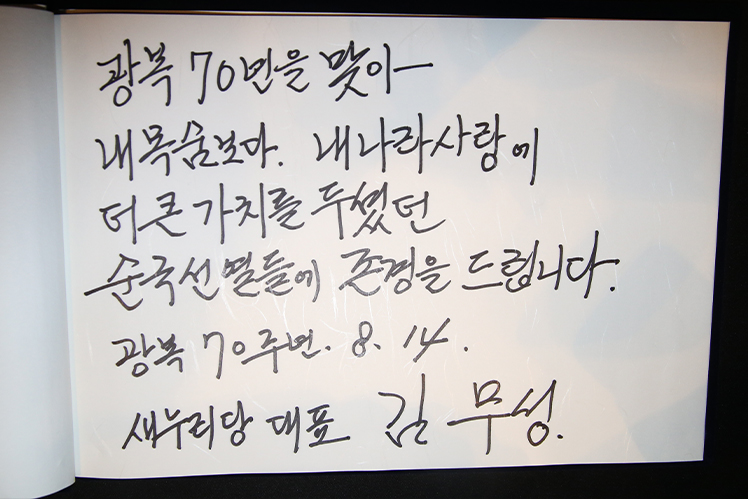 광복 70년을 맞아ㅡ
내 목숨보다. 내 나라 사랑에
더 큰 가치를 두셨던
순국선열들에 존경을 드립니다.
광복 70주년. 8. 14.
새누리당 대표 김무성.